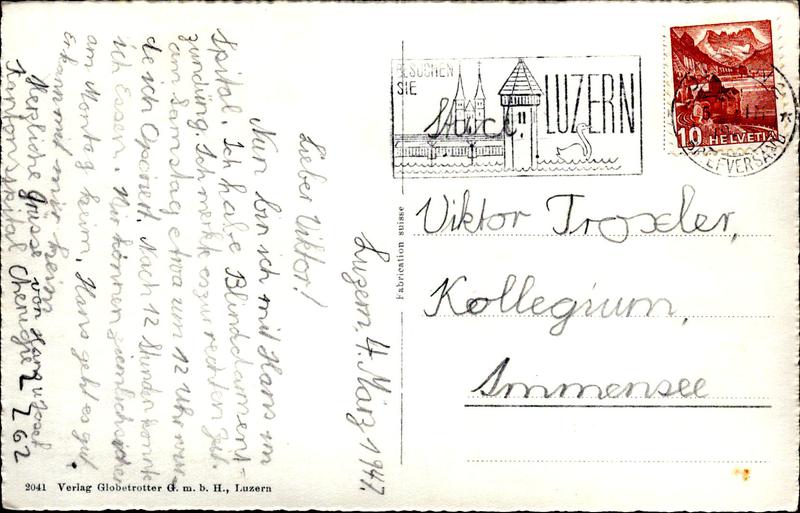 Luzern 4. März 1947.
Lieber Viktor!
Nun bin ich mit Hans im
Spital. Ich habe Blinddarment-
zündung. Ich merkte es zur rechten Zeit.
am Samstag etwa um 12 Uhr wur-
de ich Operiert. Nach 12 Stunden konnte
ich Essen. Wir können ziemlich sicher
am Montag heim. Hans geht es gut.
Er kann mit mir heim
Herzliche Grüsse von Hans u. Josef
Kantonsspital Chirurgie 2 Z 62
2041 Verlag Globetrotter G. m. b. H., Luzern
Fabrication suisse
BESUCHEN
SIE
LUZERN
Stud.
10 HELVETIA
BRIEFVERSAND
Viktor Troxler,
Kollegium,
Immensee